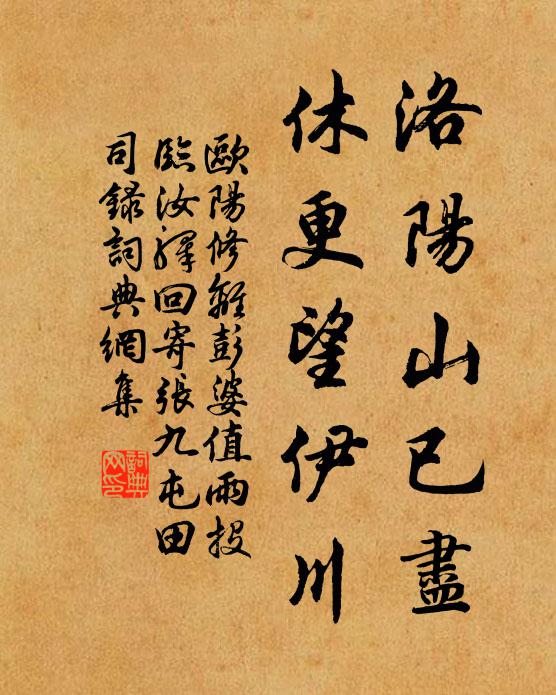 洛陽山已盡
休更望伊川
歐陽修離彭婆值雨投
臨汝驛回寄張九屯田
司錄詞典網集
詞典網印